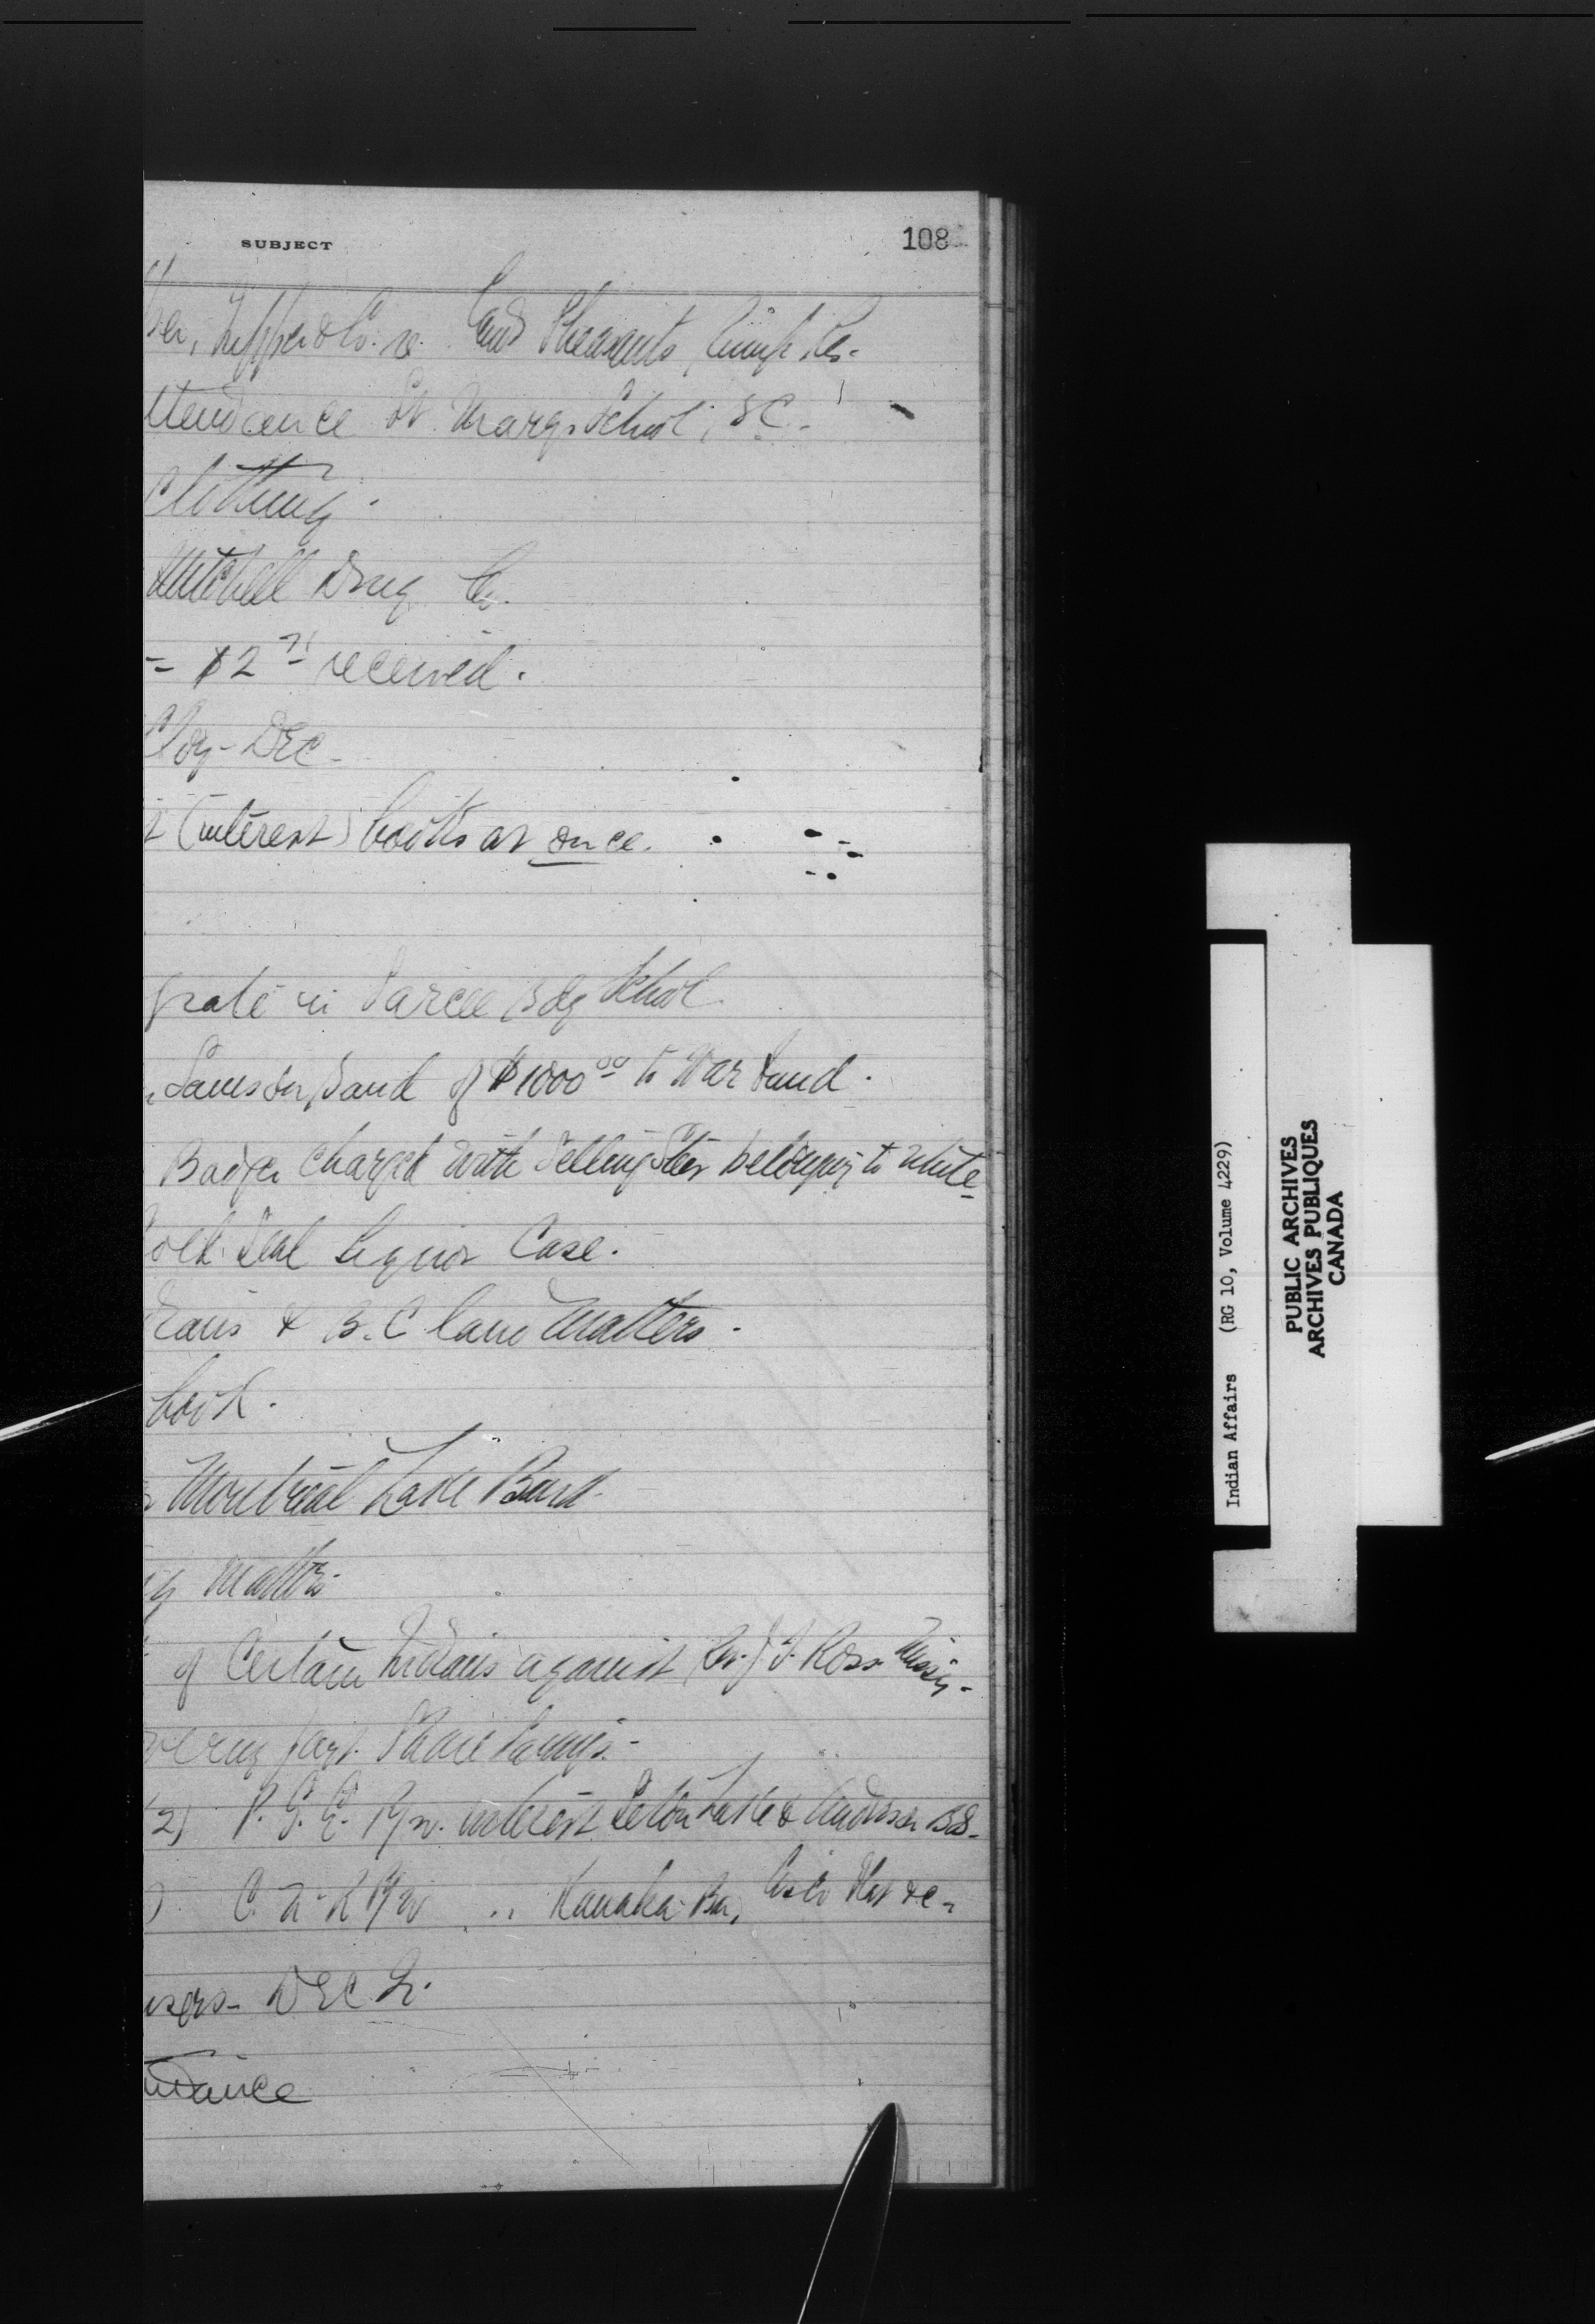 SUBJECT
108
Tupper & Co. re. Land Pheasants,
ttendance St. Marys School, &c.
Clothing.
Mitchell Drug Co.
= $2 71 received.
Cloy- DEC-
t (interest) books at once.
grate in Sarcee Bdg School
Samson Band of $1000 00 to War Fund.
Badger charged with selling Steer belonging to White
old Seal Liquor Case.
dians & B.C land matters.
book.
Montreal Lake Band.
ng matters
of Certain Indians against Rev. J. F. Ross Missy.
vering part
2) P. G. E. Ry. interest Seton Lake & Anderson
) C. N. R Ry " Kanaka Bar, Cisco Flat &c.
DEC 2.
ndance
Indian Affairs (RG 10, Volume 4229)
PUBLIC ARCHIVES
ARCHIVES PUBLIQUES
CANADA